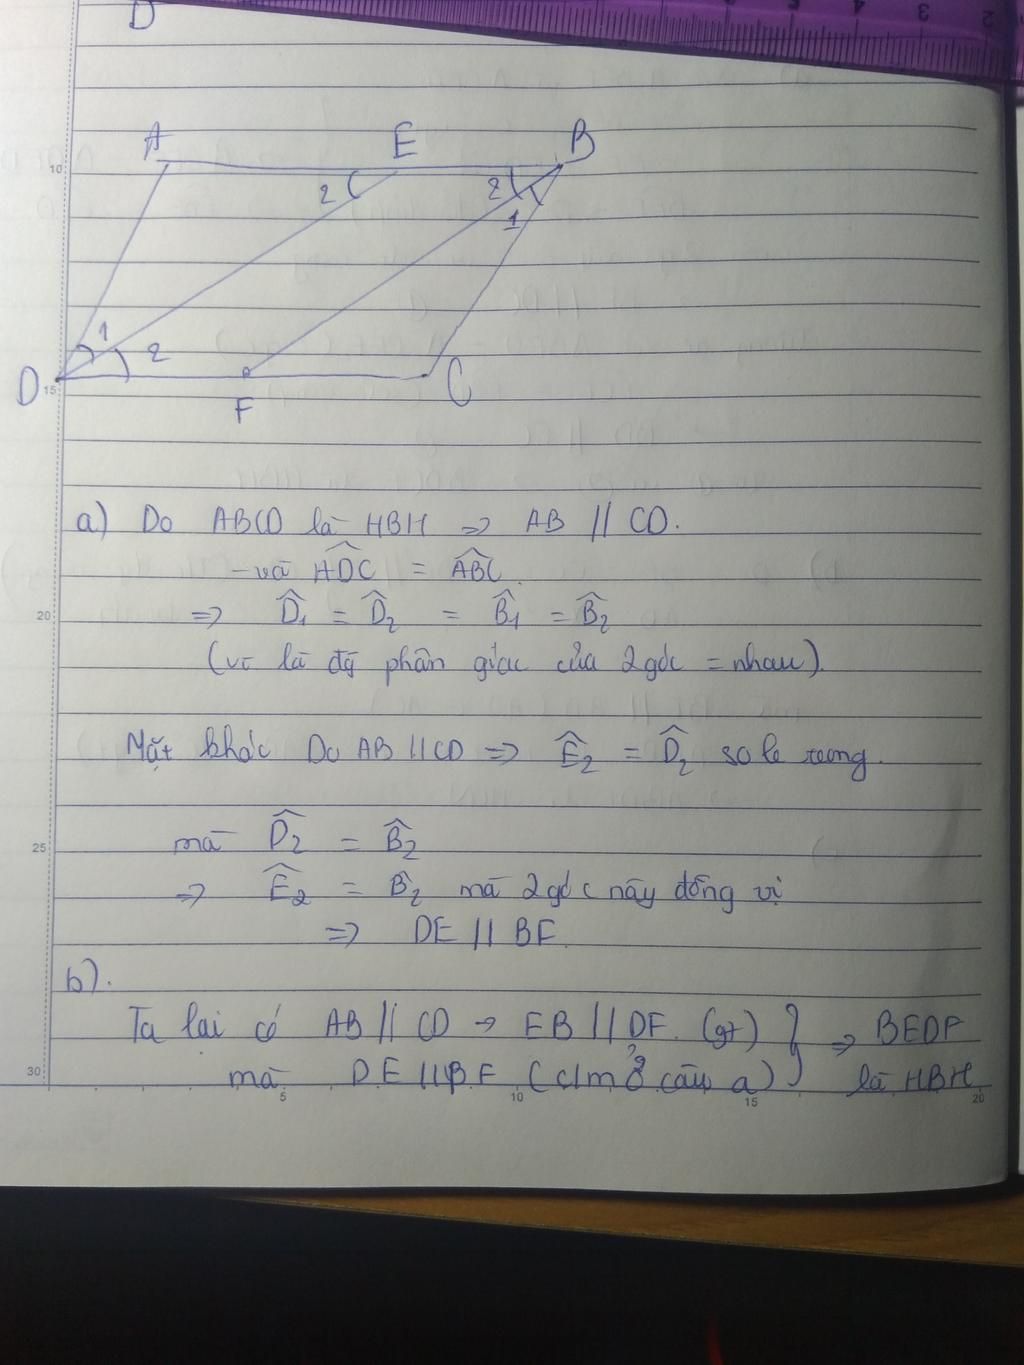 D
A E B
2 2
1
1
2
D F C
10
15
a) Do ABCD là HBH => AB // CD.
20
- và ADC = ABC
=> D̂₁ = D̂₂ = B̂₁ = B̂₂
(vì là đg phân giác của 2 góc = nhau).
Mặt khác Do AB // CD => Ê₂ = D̂₂ so le trong.
25
mà D̂₂ = B̂₂
=> Ê₂ = B̂₂ mà 2 góc này đồng vị
=> DE // BF
b).
Ta lại có AB // CD → EB // DF. (gt) } => BEDF
30
mà DE // BF (c/m ở câu a) là HBH
5 10 15 20
5 4 3 2